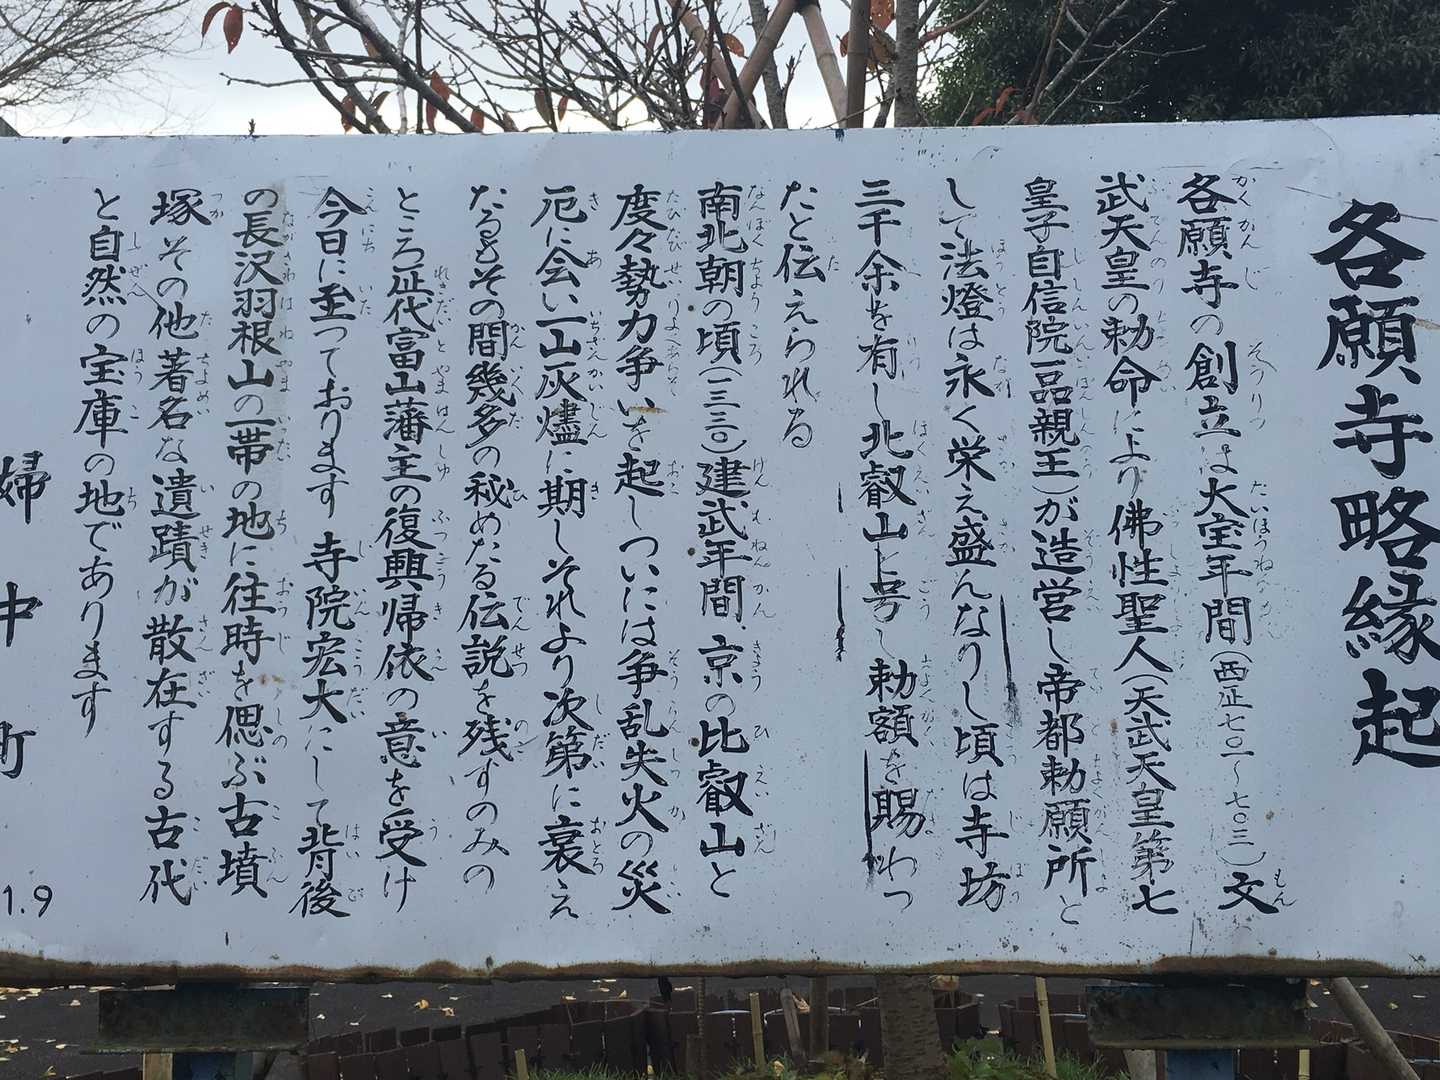 各願寺略縁起
各願寺の創立は大宝年間(西正七〇一〜七〇三)文
武天皇の勅命により佛性聖人(天武天皇第七
皇子自信院一品親王)が造営し帝都勅願所と
して法燈は永く栄え盛んなりし頃は寺坊
三千余を有し北叡山と号し勅額を賜わっ
たと伝えられる
南北朝の頃(一三三〇)建武年間京の比叡山と
度々勢力争いを起しついには争乱失火の災
厄に会い一山灰燼に期しそれより次第に衰え
たるもその間幾多の秘めたる伝説を残すのみの
ところ歴代富山藩主の復興帰依の意を受け
今日に至っております 寺院宏大にして背後
の長沢羽根山の一帯の地に往時を偲ぶ古墳
塚その他著名な遺蹟が散在する古代
と自然の宝庫の地であります
婦中町
1.9